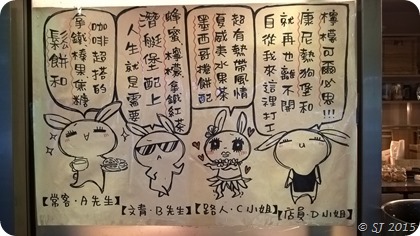 鬆餅和
拿鐵榛果焦糖
咖啡超搭的
人生就是需要
潛艇堡配上
蜂蜜檸檬紅茶
墨西哥捲餅配
夏威夷水果茶
超有熱帶風情
自從我來這裡打工
就再也離不開
康尼熱狗堡和
檸檬可爾必思!!!
【常客·A先生】
【文青·B先生】
【路人·C小姐】
【店員·D小姐】
© SJ 2015